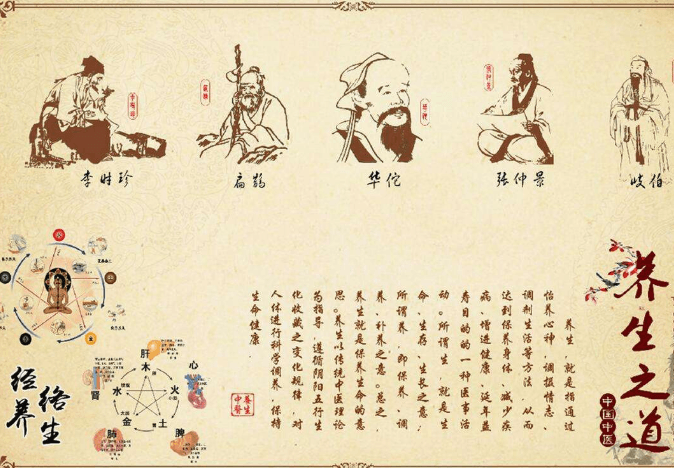 李时珍
扁鹊
华佗
张仲景
岐伯
养生之道
中国中医
养生，就是指通过
怡养心神、调摄情志、
调剂生活等方法，从而
达到保养身体、减少疾
病、增进健康、延年益
寿目的的一种医事活
动。所谓生，就是生
命、生存、生长之意；
所谓养，即保养、调
养、补养之意。总之，
养生就是保养生命的意
思。养生以传统中医理论
为指导，遵循阴阳五行生
化收藏之变化规律，对
人体进行科学调养，保持
生命健康
养生
中醫
经络
养生
肝
木
心
火
脾
土
肺
金
肾
水